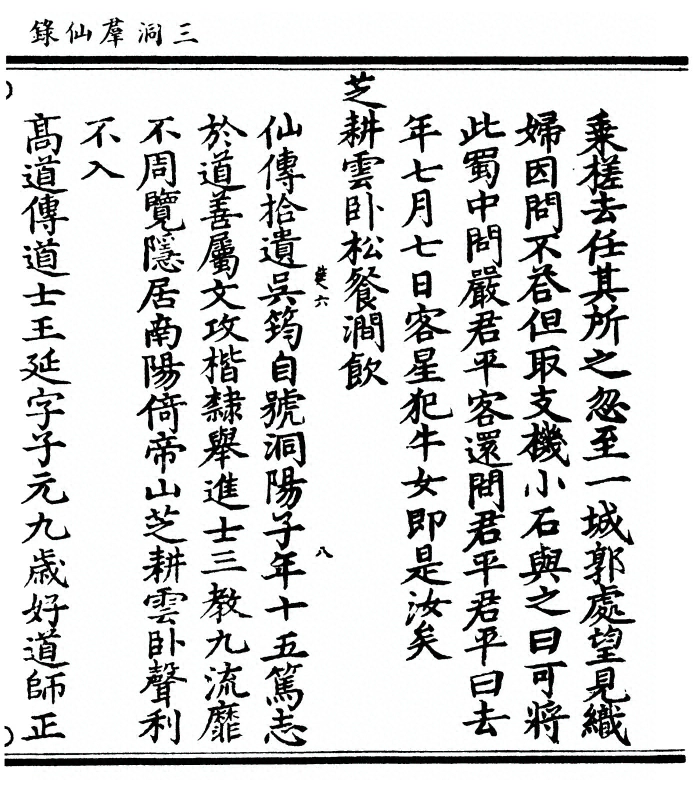 三洞羣仙錄
乘槎去任其所之忽至一城郭處望見織
婦因問不荅但取支機小石與之曰可將
此蜀中問嚴君平客還問君平君平曰去
年七月七日客星犯牛女即是汝矣
芝耕雲卧松餐澗飲
仙傳拾遺吳筠自號洞陽子年十五篤志
於道善屬文攻楷隸舉進士三教九流靡
不周覽隱居南陽倚帝山芝耕雲卧聲利
不入
高道傳道士王延字子元九歲好道師正
六
八